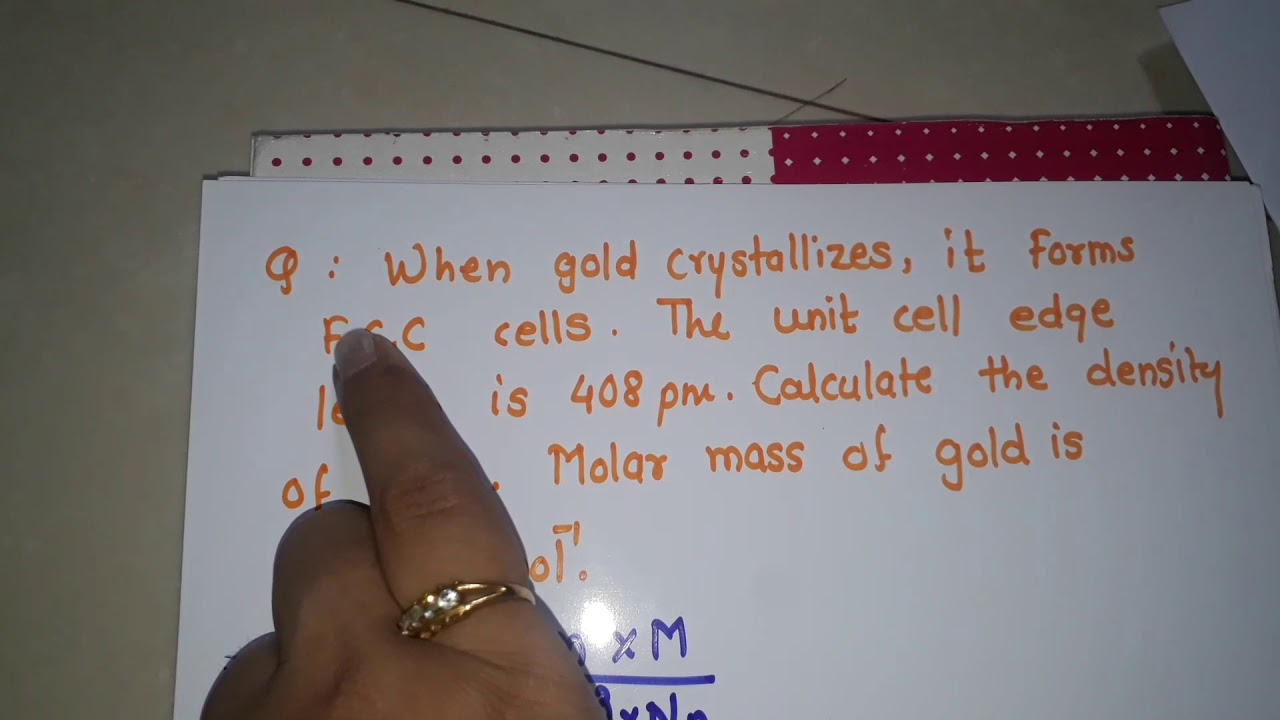 Q : When gold crystallizes, it forms
F.C.C cells. The unit cell edge
is 408 pm. Calculate the density
of . Molar mass of gold is
ol⁻¹.
n x M